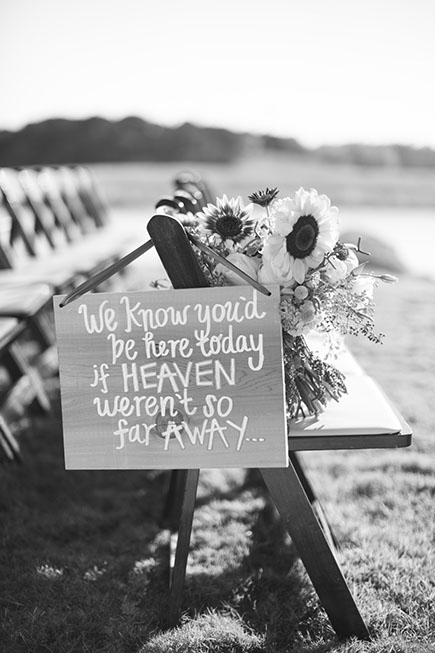 We Know you'd
be here today
if HEAVEN
weren't so
far AWAY...